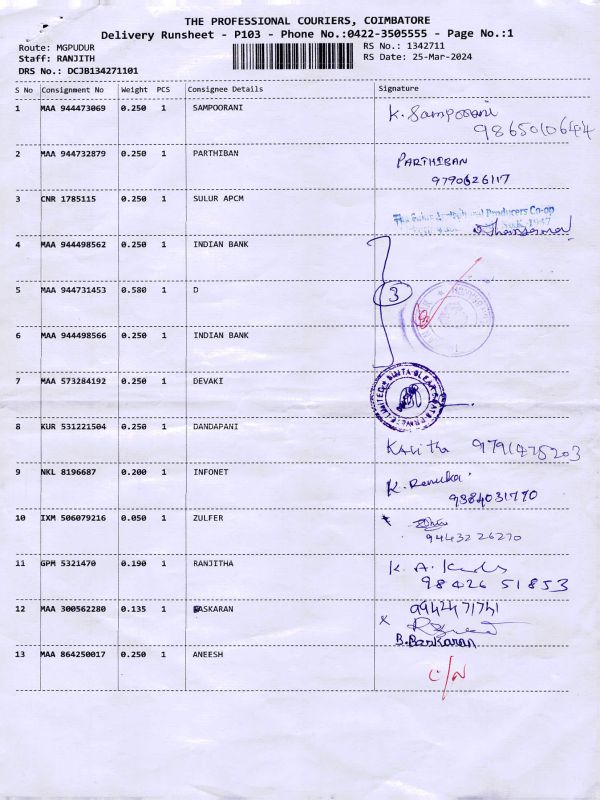 THE PROFESSIONAL COURIERS, COIMBATORE
Delivery Runsheet - P103 - Phone No.:0422-3505555 - Page No.:1
Route: MGPUDUR
RS No.: 1342711
Staff: RANJITH
RS Date: 25-Mar-2024
DRS No.: DCJB134271101
S No Consignment No Weight PCS Consignee Details Signature
1 MAA 944473069 0.250 1 SAMPOORANI K. Sampoorani
9865010644
2 MAA 944732879 0.250 1 PARTHIBAN PARTHIBAN
9790626117
3 CNR 1785115 0.250 1 SULUR APCM
Producers Co-op
4 MAA 944498562 0.250 1 INDIAN BANK
5 MAA 944731453 0.580 1 D 3
6 MAA 944498566 0.250 1 INDIAN BANK
7 MAA 573284192 0.250 1 DEVAKI
8 KUR 531221504 0.250 1 DANDAPANI Kavitha 9791475203
9 NKL 8196687 0.200 1 INFONET K. Renuka
9384031770
10 IXM 506079216 0.050 1 ZULFER
94432 26270
11 GPM 5321470 0.190 1 RANJITHA K. A.
98426 51853
12 MAA 300562280 0.135 1 BASKARAN 9942471741
x
B. Baskaran
13 MAA 864250017 0.250 1 ANEESH
C/N